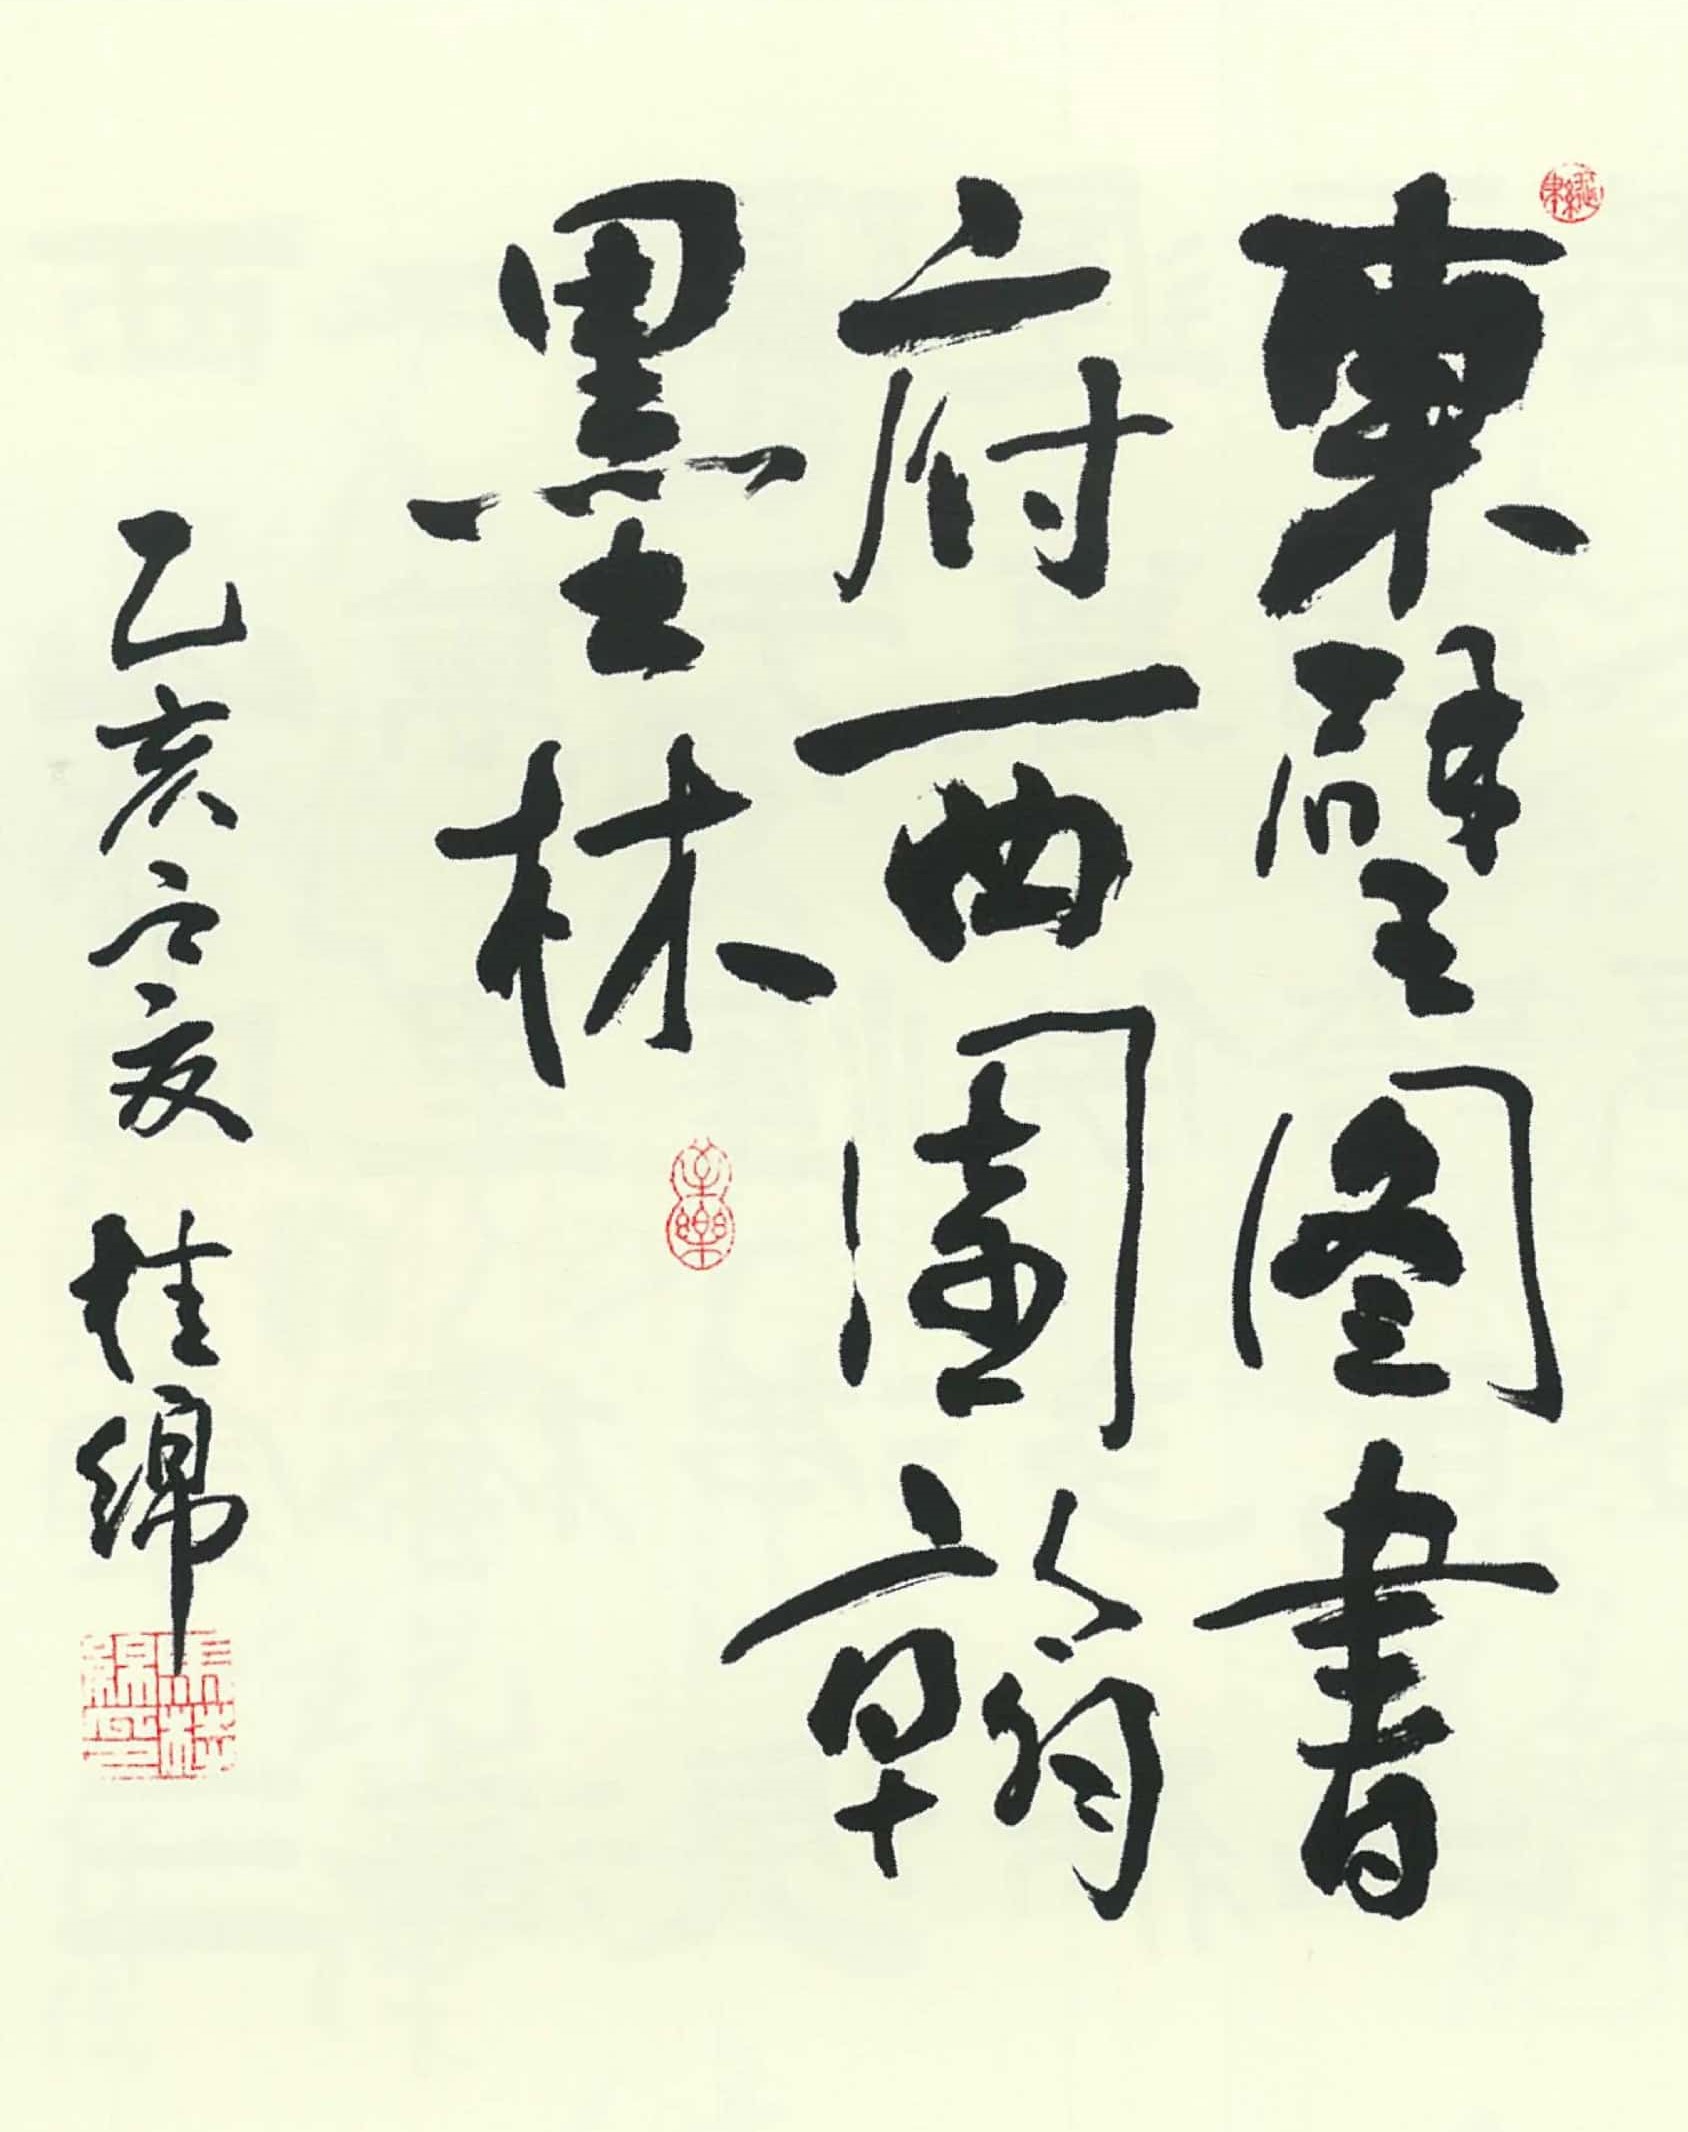 東壁圖書
府西園翰
墨林
乙亥之夏 桂綿